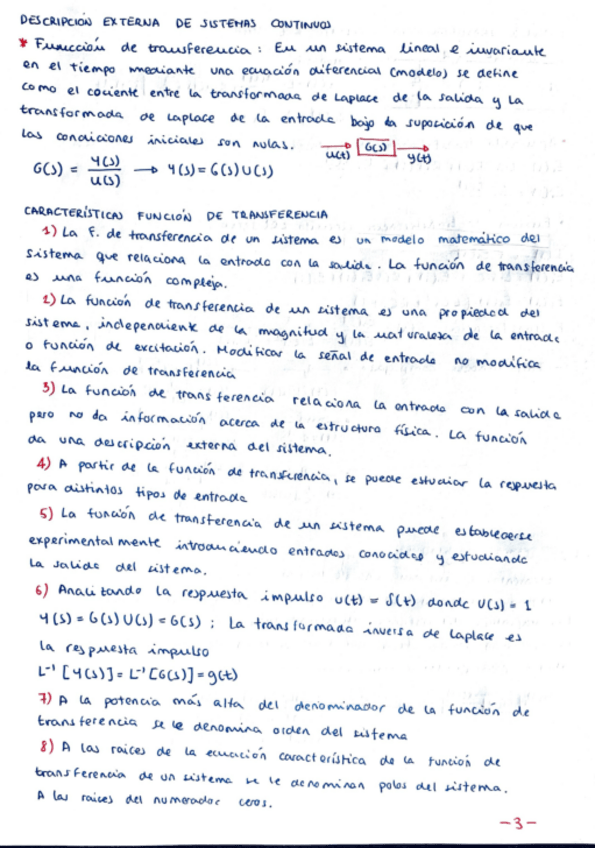 DESCRIPCIÓN EXTERNA DE SISTEMAS CONTINUOS
* Función de transferencia: En un sistema lineal e invariante
en el tiempo mediante una ecuación diferencial (modelo) se define
como el cociente entre la transformada de Laplace de la salida y la
transformada de Laplace de la entrada bajo la suposición de que
las condiciones iniciales son nulas. u(t) G(s) y(t)
G(s) = Y(s)/U(s) → Y(s) = G(s)U(s)
CARACTERÍSTICAS FUNCIÓN DE TRANSFERENCIA
1) La F. de transferencia de un sistema es un modelo matemático del
sistema que relaciona la entrada con la salida. La función de transferencia
es una función compleja.
2) La función de transferencia de un sistema es una propiedad del
sistema, independiente de la magnitud y la naturaleza de la entrada
o función de excitación. Modificar la señal de entrada no modifica
la función de transferencia
3) La función de transferencia relaciona la entrada con la salida
pero no da información acerca de la estructura física. La función
da una descripción externa del sistema.
4) A partir de la función de transferencia, se puede estudiar la respuesta
para distintos tipos de entrada
5) La función de transferencia de un sistema puede establecerse
experimentalmente introduciendo entradas conocidas y estudiando
la salida del sistema.
6) Analizando la respuesta impulso u(t) = δ(t) donde U(s) = 1
Y(s) = G(s)U(s) = G(s); La transformada inversa de Laplace es
la respuesta impulso
L⁻¹[Y(s)] = L⁻¹[G(s)] = g(t)
7) A la potencia más alta del denominador de la función de
transferencia se le denomina orden del sistema
8) A las raíces de la ecuación característica de la función de
transferencia de un sistema se le denominan polos del sistema.
A las raíces del numerador ceros.
-3-